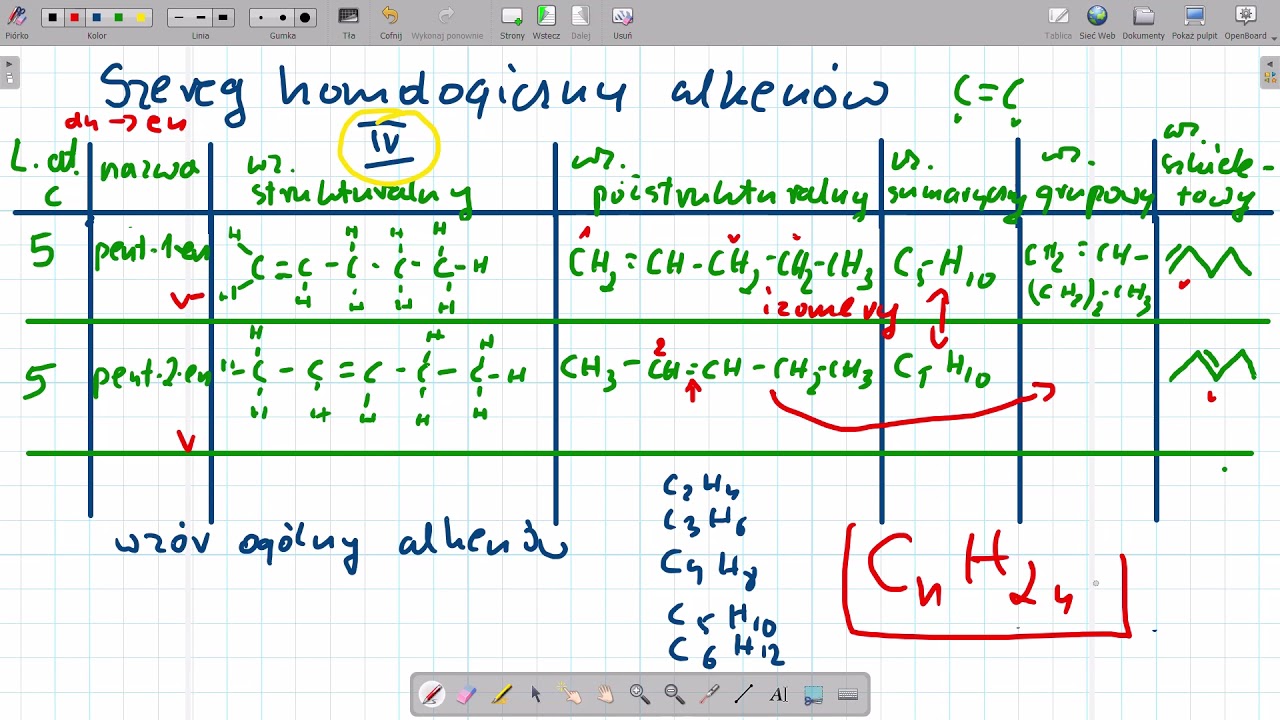 Piórko Kolor Linia Gumka Tła Cofnij Wykonaj ponownie Strony Wstecz Dalej Usuń Tablica Sieć Web Dokumenty Pokaż pulpit OpenBoard
Szereg homologiczny alkenów C=C
an → en
IV
L. at. C
nazwa
wz. strukturalny
wz. półstrukturalny
wz. sumaryczny
wz. grupowy
wz. szkieletowy
5
pent-1-en
H H H H
C = C - C - C - C - H
H H H H H
1
CH2 = CH - CH2 - CH2 - CH3
C5H10
CH2 = CH -
(CH2)2 - CH3
izomery
5
pent-2-en
H H H
H - C - C = C - C - C - H
H H H H H
2
CH3 - CH = CH - CH2 - CH3
C5H10
wzór ogólny alkenów
C2H4
C3H6
C4H8
C5H10
C6H12
CnH2n